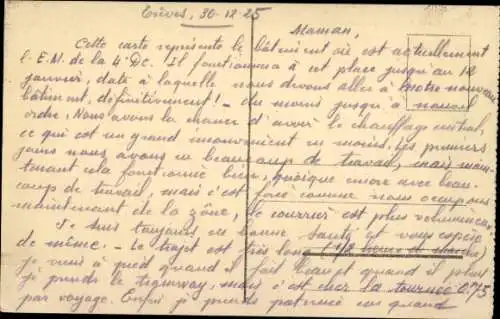 Trèves, 30-12-25
Maman,
Cette carte représente le bâtiment où est actuellement
l'E.M. de la 4e DC. Il fonctionnera à cet place jusqu'au 12
janvier, date à laquelle nous devons aller à notre nouveau
bâtiment, définitivement! - du moins jusqu'à nouvel
ordre. Nous avons la chance d'avoir le chauffage central,
ce qui est un grand inconvénient en moins. Les premiers
jours nous avons eu beaucoup de travail, mais main-
tenant cela fonctionne bien, quoique encore avec beau-
coup de travail, mais c'est forcé comme nous occupons
maintenant de la zône, le courrier est plus volumineux.
Je suis toujours en bonne santé et vous espère
de même. - Le trajet est très long (1/2 heure de marche)
je vais à pied quand il fait beau et quand il pleut
je prends le tramway, mais c'est cher la tournée 0.75
par voyage. Enfin je prends patience en quand